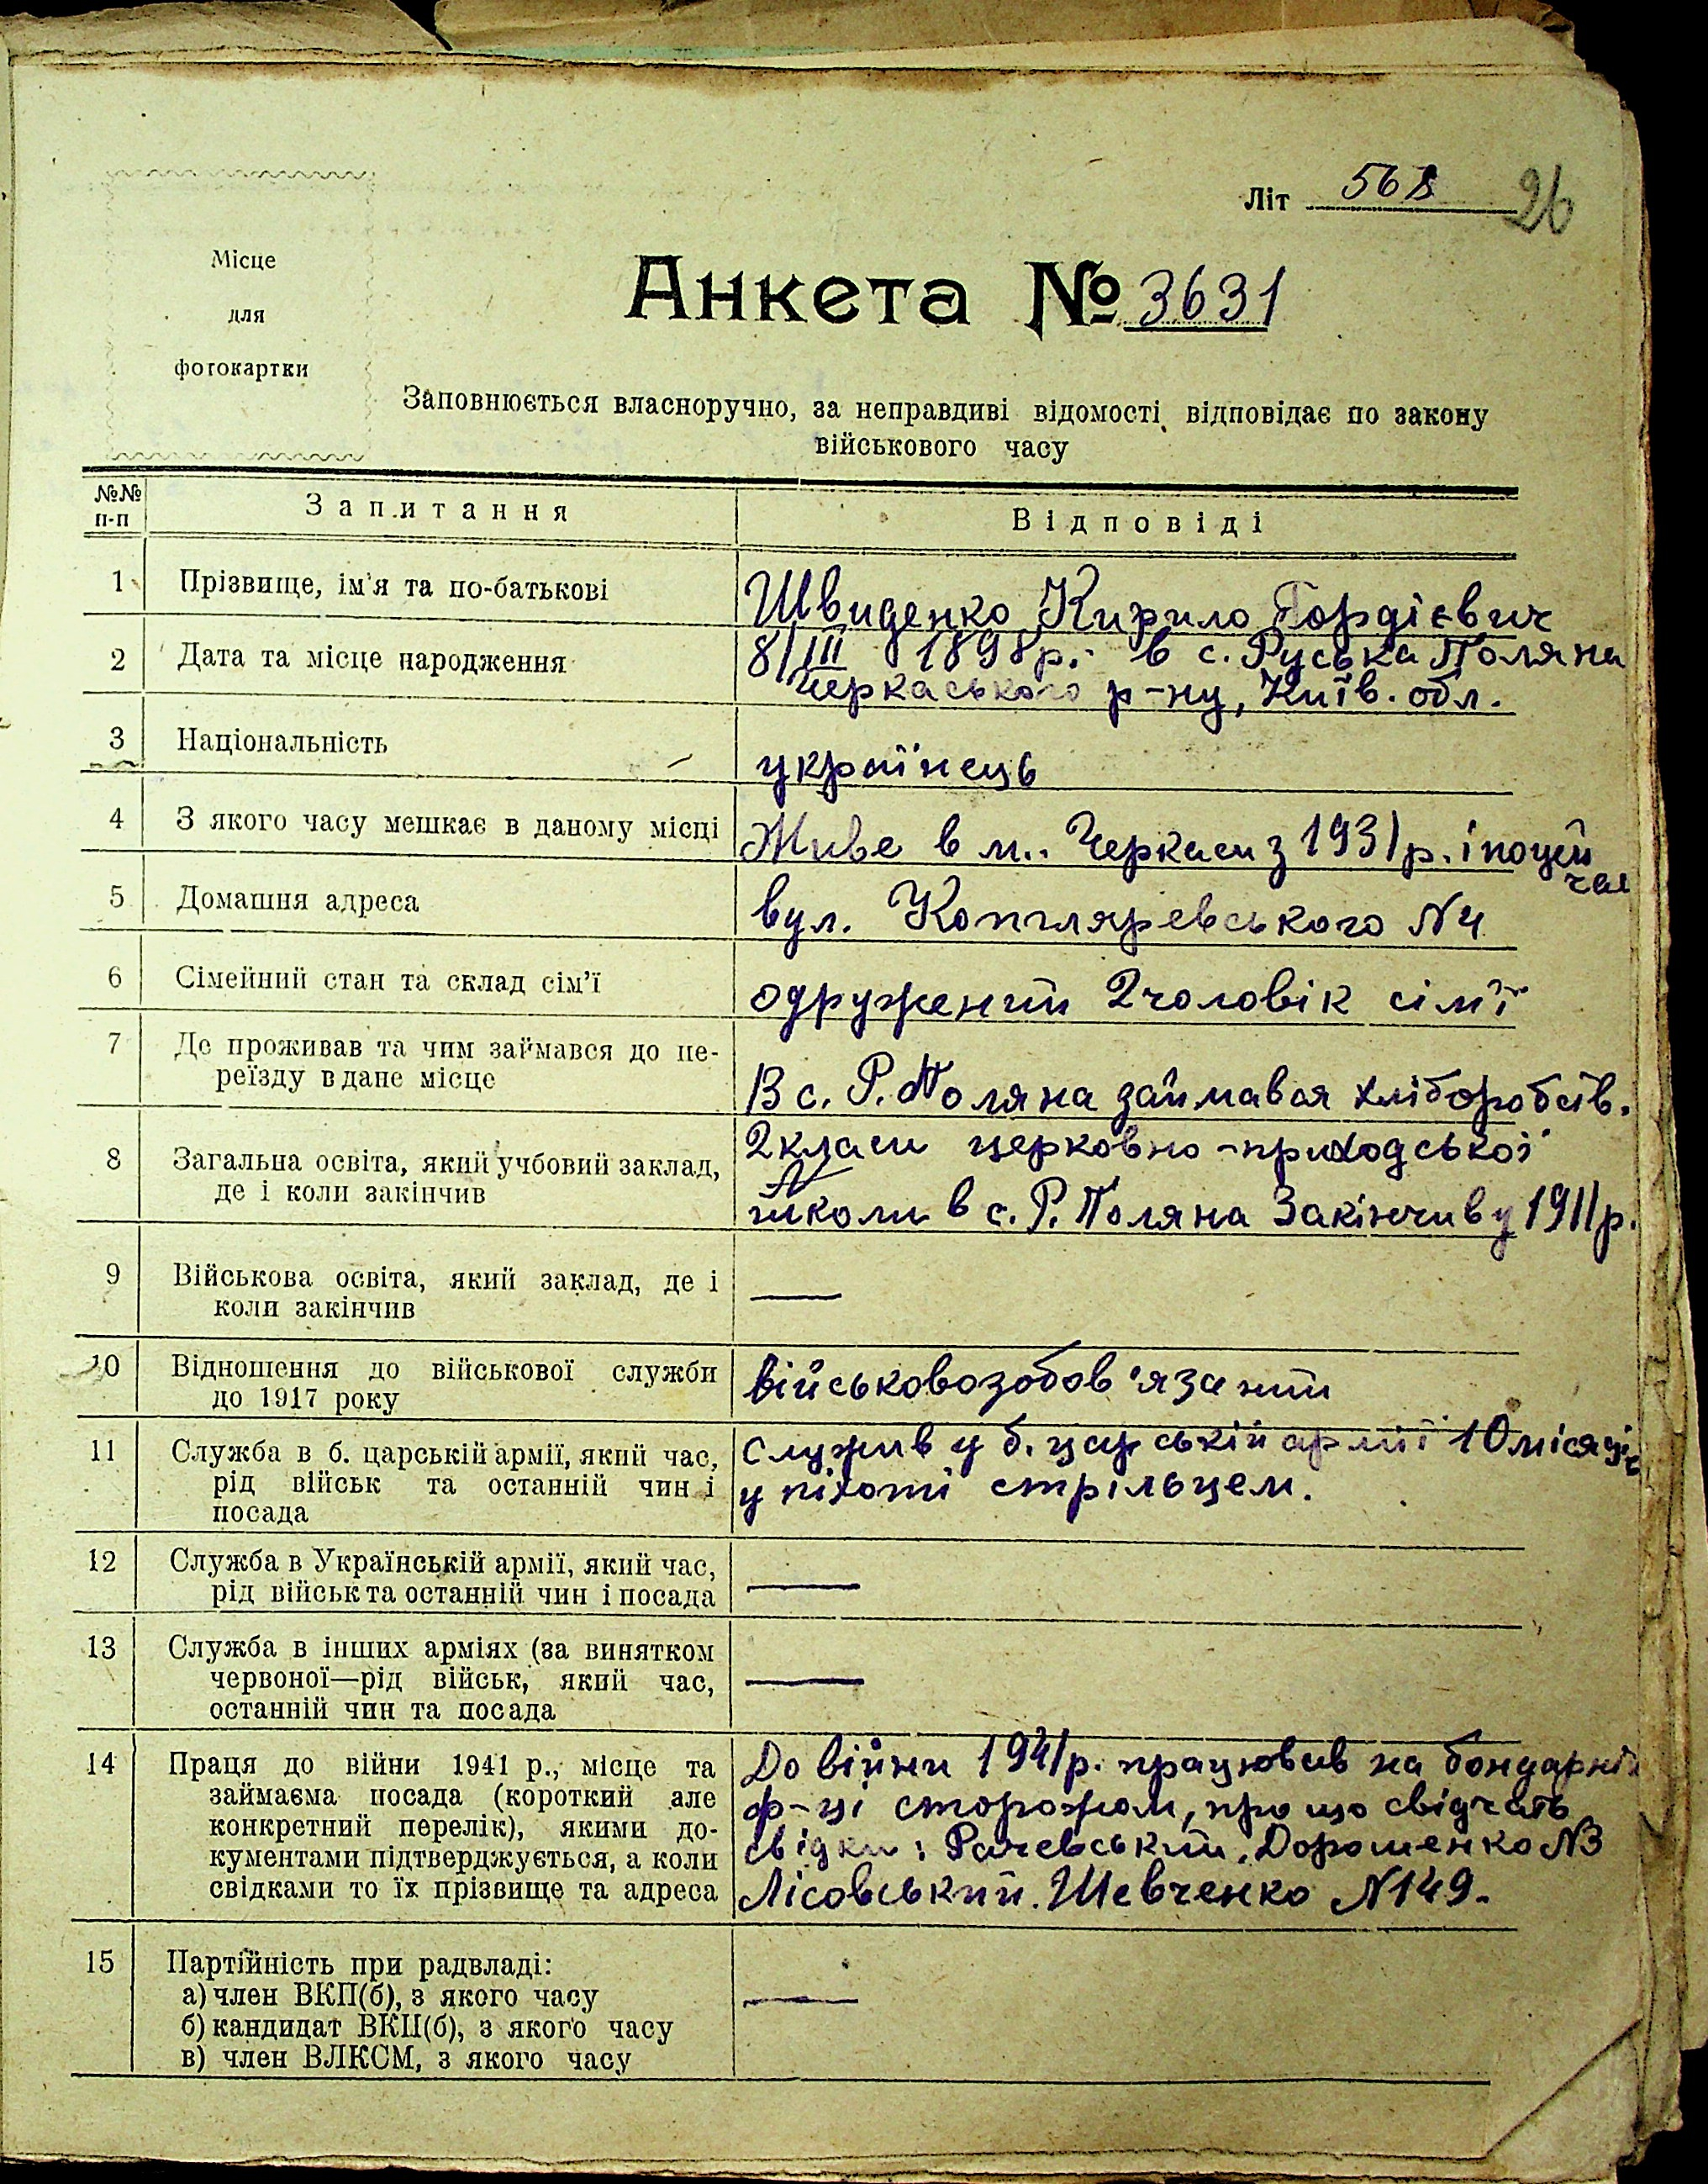 Літ 568 26
Місце
для
фотокартки
Анкета № 3631
Заповнюється власноручно, за неправдиві відомості відповідає по закону
військового часу
№№ п-п Запитання Відповіді
1 Прізвище, ім'я та по-батькові Швиденко Кирило Гордієвич
2 Дата та місце народження 8/III 1898р. в с. Руська Поляна
Черкаського р-ну, Київ. обл.
3 Національність українець
4 З якого часу мешкає в даному місці Живе в м. Черкаси з 1931р. і по цей
час
5 Домашня адреса вул. Котляревського N4
6 Сімейний стан та склад сім'ї одружений 2 чоловік сім'ї
7 Де проживав та чим займався до пе-
реїзду в дане місце В с. Р. Поляна займався хліборобств.
8 Загальна освіта, який учбовий заклад, 2 класи церковно-приходської
де і коли закінчив школи в с. Р. Поляна Закінчив у 1911р.
9 Військова освіта, який заклад, де і —
коли закінчив
10 Відношення до військової служби військовозобов'язаний
до 1917 року
11 Служба в б. царській армії, який час, служив у б. царській армії 10 місяців
рід військ та останній чин і у піхоті стрільцем.
посада
12 Служба в Українській армії, який час, —
рід військ та останній чин і посада
13 Служба в інших арміях (за винятком
червоної—рід військ, який час, —
останній чин та посада
14 Праця до війни 1941 р., місце та До війни 1941р. працював на бондарній
займаєма посада (короткий але ф-ці сторожом, про що свідчать
конкретний перелік), якими до- свідки: Рачевський, Дорошенко N3
кументами підтверджується, а коли Лісовський. Шевченко N149.
свідками то їх прізвище та адреса
15 Партійність при радвладі:
а) член ВКП(б), з якого часу —
б) кандидат ВКП(б), з якого часу
в) член ВЛКСМ, з якого часу